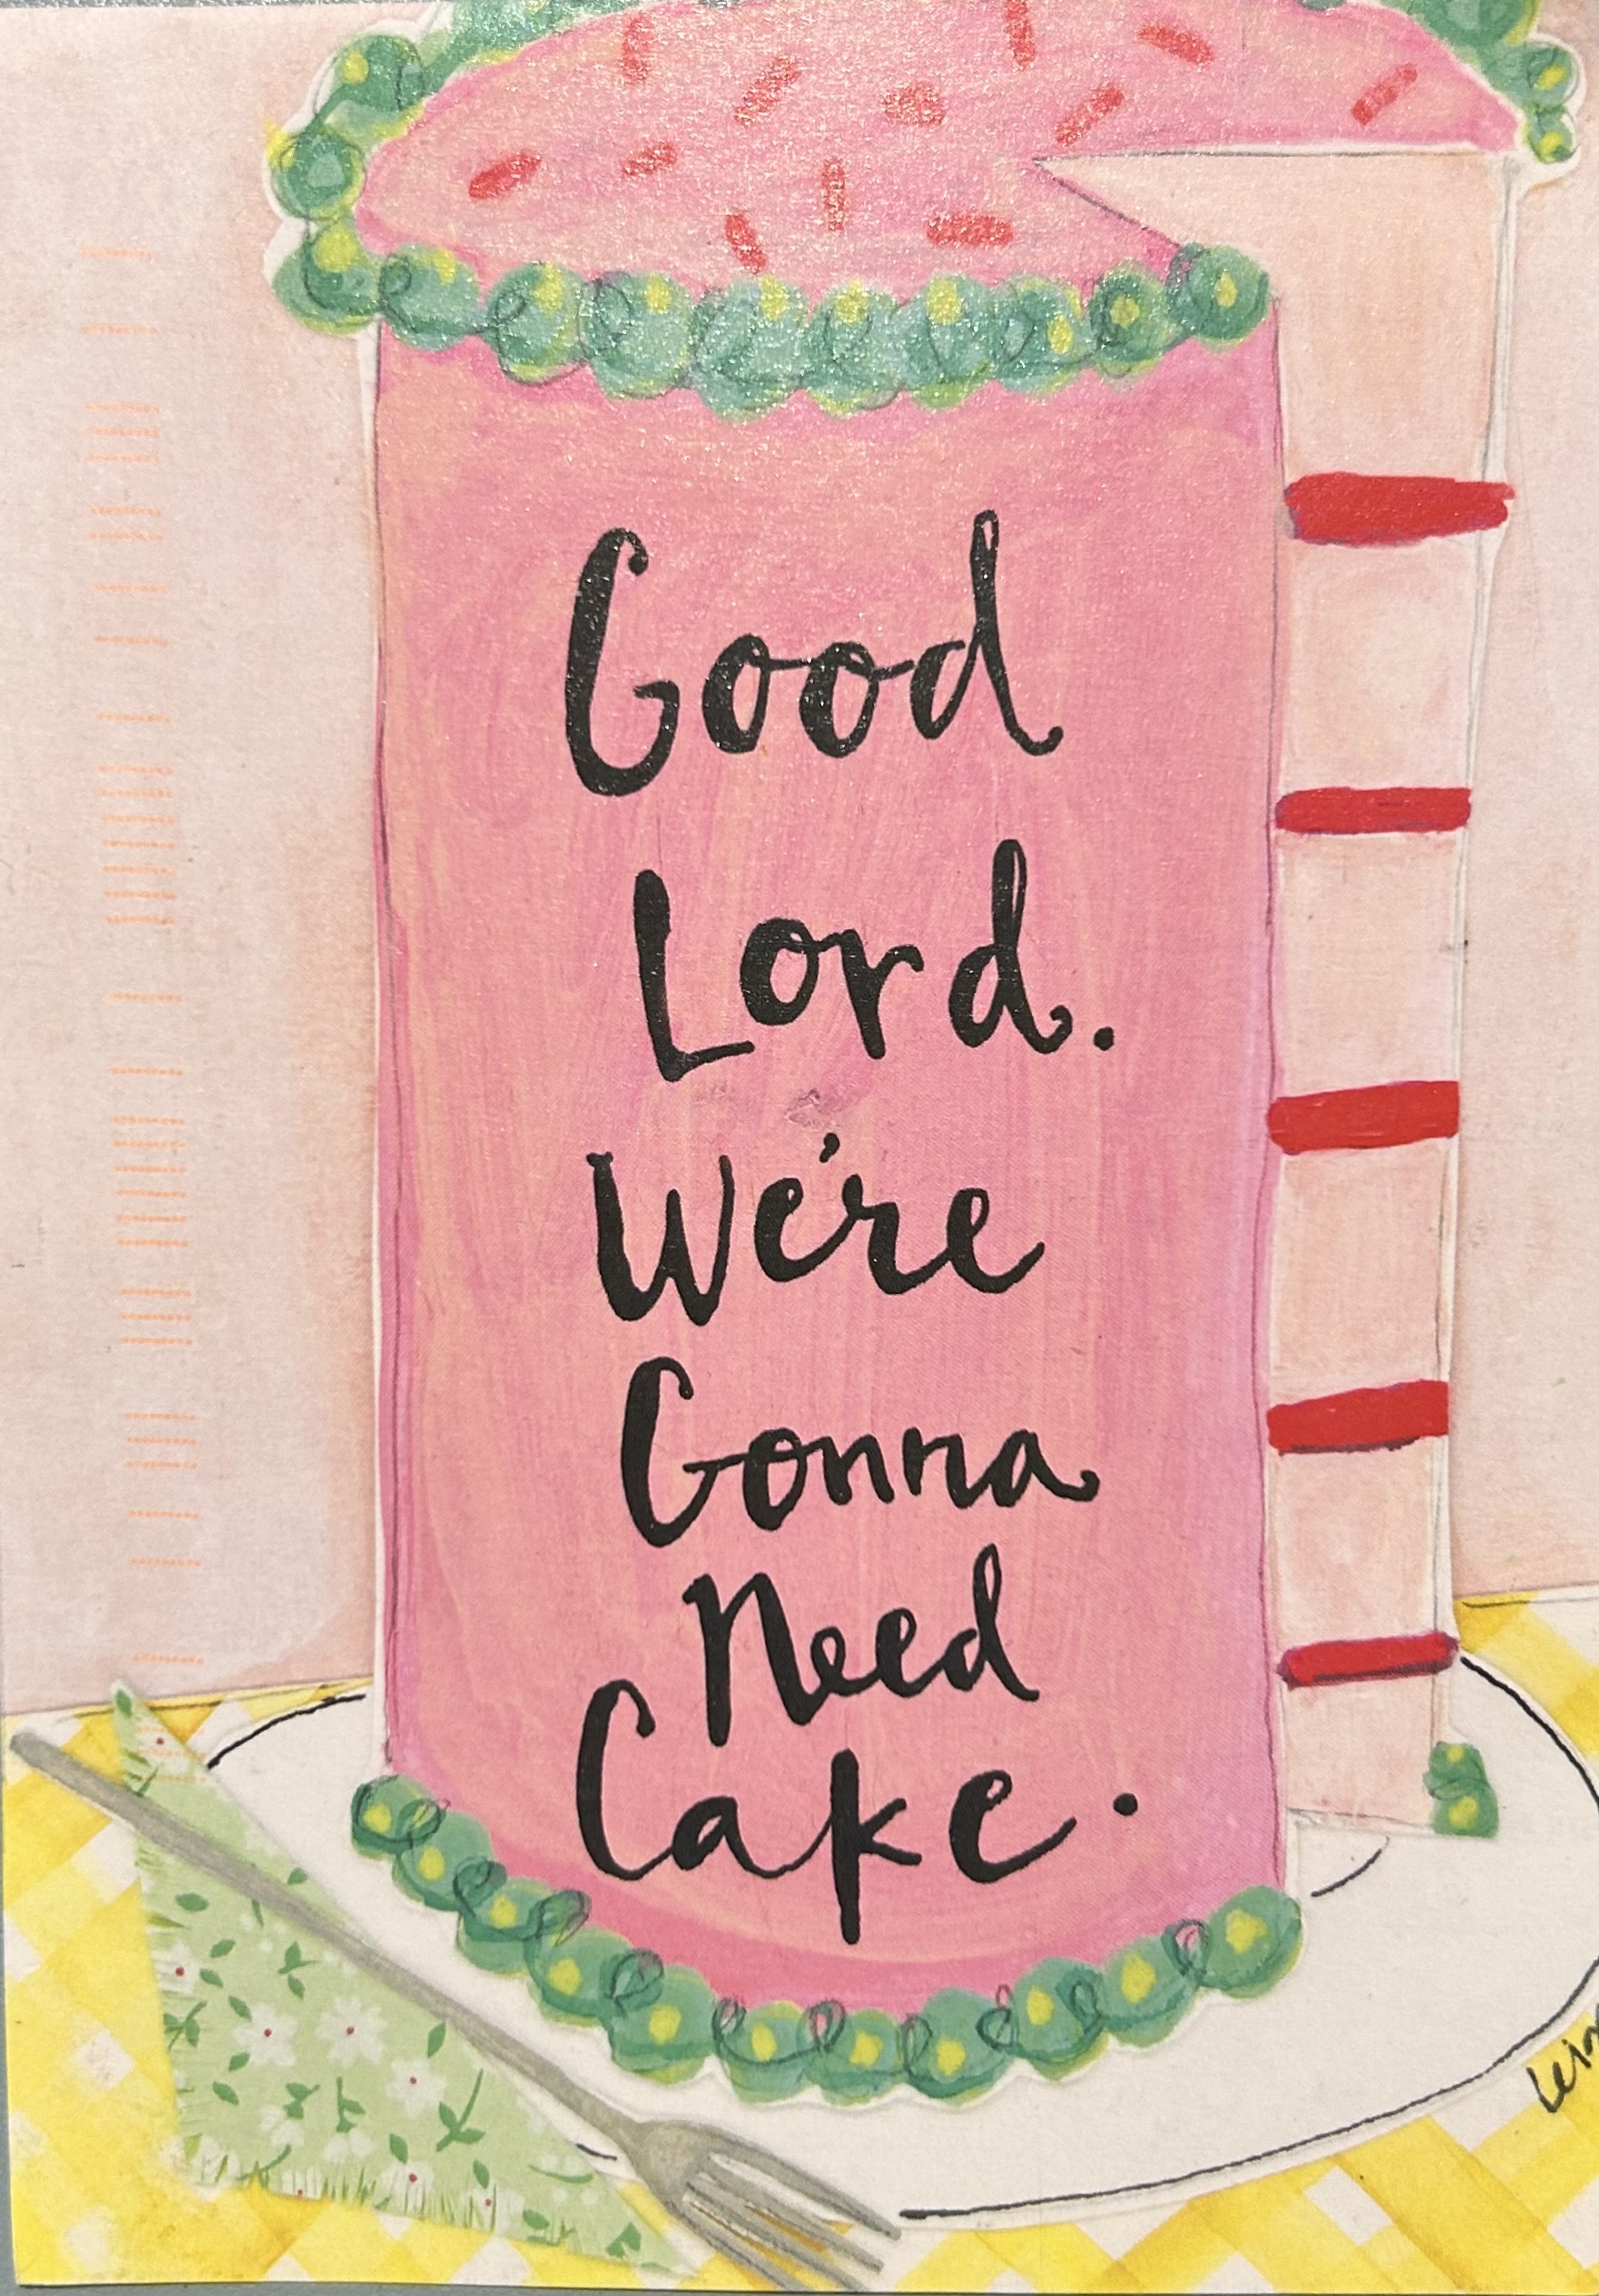 Good
Lord.
We're
Gonna
Need
Cake.